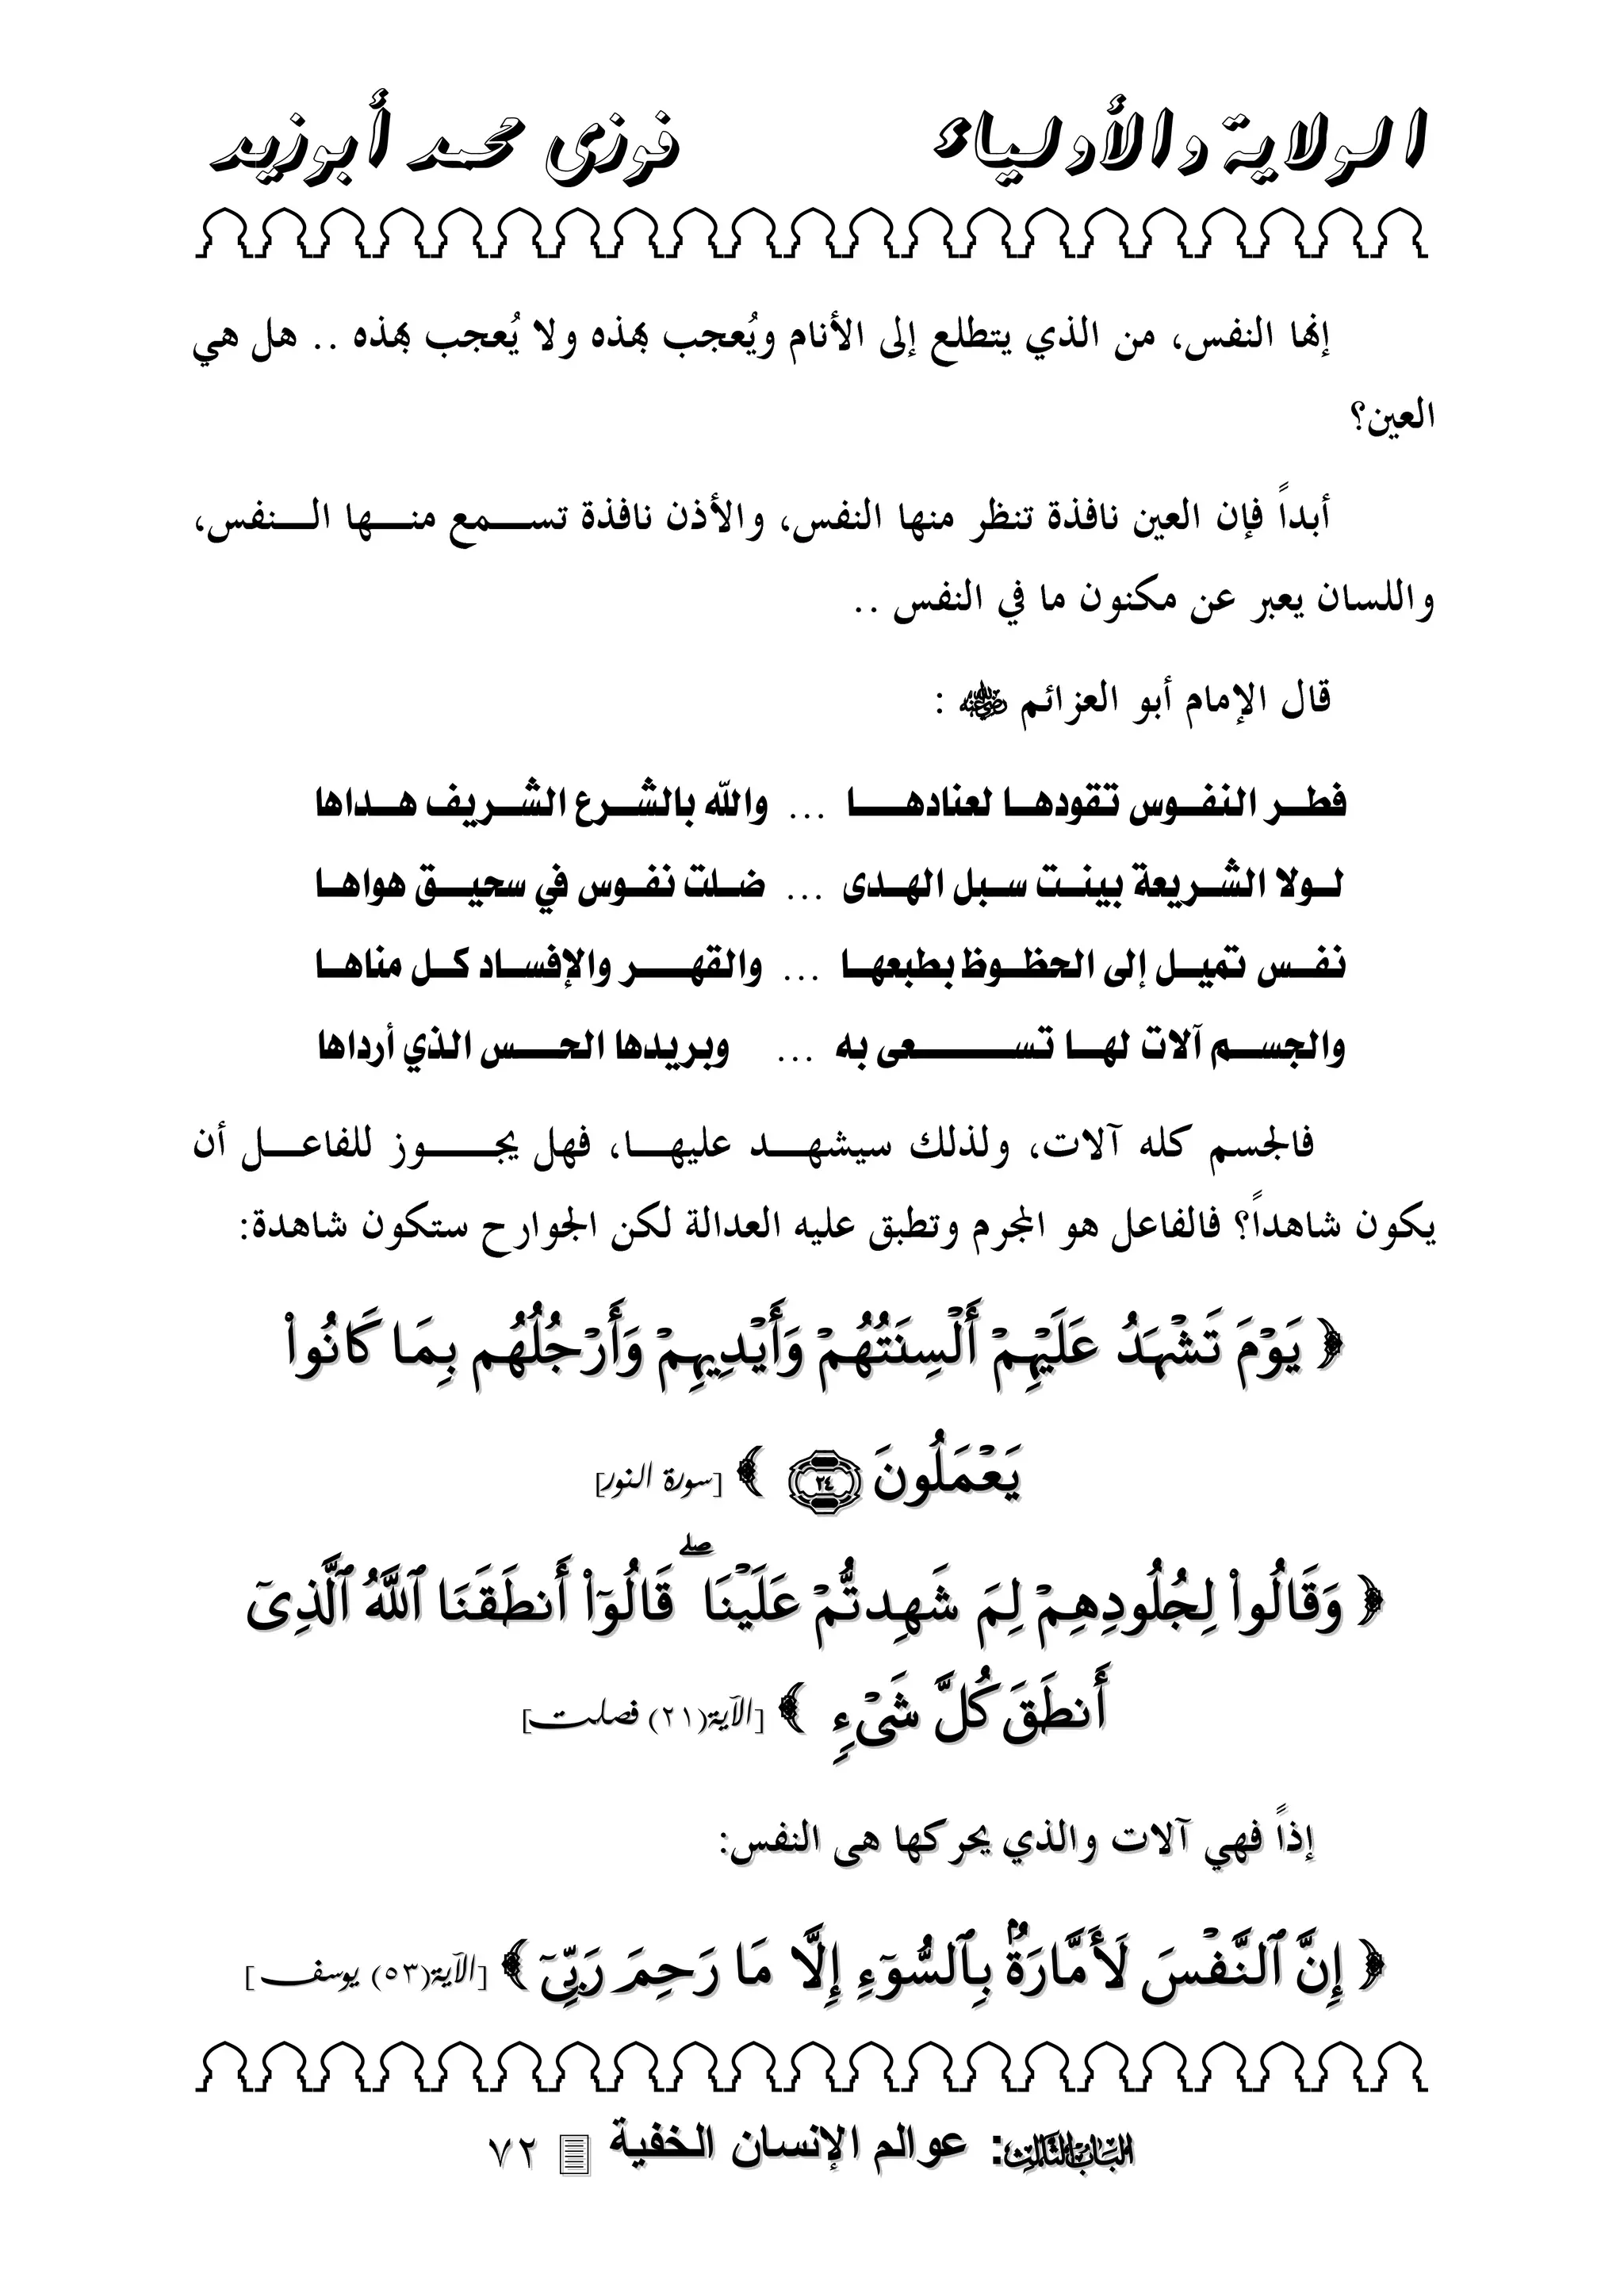 الولاية والأولياء فوزى محمد أبوزيد
إنها النفس، من الذي يتطلع إلى الأنام ويُعجب بهذه ولا يُعجب بهذه .. هل هي
العين؟
أبداً فإن العين نافذة تنظر منها النفس، والأذن نافذة تسمع منها النفس،
واللسان يعبر عن مكنون ما في النفس ..
قال الإمام أبو العزائم رضي الله عنه :
فطر النفوس تقودها لعنادها ... والله بالشرع الشريف هداها
لولا الشريعة بينت سبل الهدى ... ضلت نفوس في سحيق هواها
نفس تميل إلى الحظوظ بطبعها ... والقهر والإفساد كل مناها
والجسم آلات لها تسعى به ... ويريدها الحس الذي أرداها
فالجسم كله آلات، ولذلك سيشهد عليها، فهل يجوز للفاعل أن
يكون شاهداً؟ فالفاعل هو المجرم وتطبق عليه العدالة لكن الجوارح ستكون شاهدة:
﴿ يَوْمَ تَشْهَدُ عَلَيْهِمْ أَلْسِنَتُهُمْ وَأَيْدِيهِمْ وَأَرْجُلُهُم بِمَا كَانُوا۟
يَعْمَلُونَ ٢٤ ﴾ [سورة النور]
﴿ وَقَالُوا۟ لِجُلُودِهِمْ لِمَ شَهِدتُّمْ عَلَيْنَا ۖ قَالُوٓا۟ أَنطَقَنَا ٱللَّهُ ٱلَّذِىٓ
أَنطَقَ كُلَّ شَىْءٍ ﴾ [الآية(٢١) فصلت]
إذاً فهي آلات والذي يحركها هى النفس:
﴿ إِنَّ ٱلنَّفْسَ لَأَمَّارَةٌۢ بِٱلسُّوٓءِ إِلَّا مَا رَحِمَ رَبِّىٓ ﴾ [الآية(٥٣) يوسف]
الباب الثالث: عوالم الإنسان الخفية ٧٢